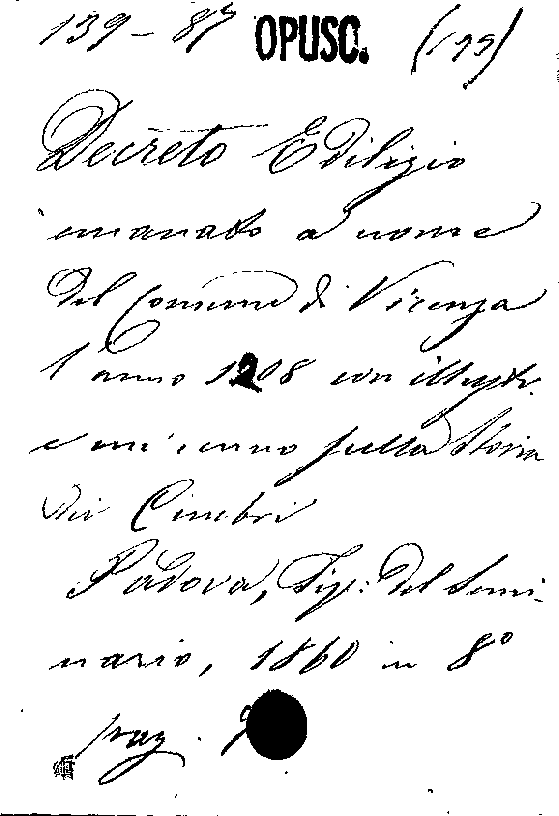 139-87 OPUSC. (19)
Decreto Edilizio
emanato a nome
del Comune di Vicenza
l'anno 1208 con illustr.
e un cenno sulla Storia
dei Cimbri
Padova, Tip: del Semi-
nario, 1860 in 8°
pag.